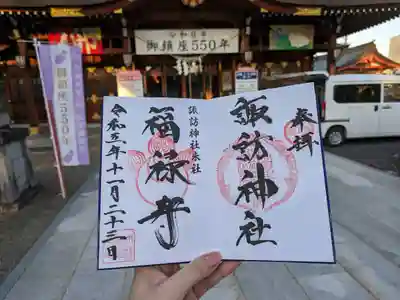 令和6年
御鎮座550年
御鎮座550年
奉拝
諏訪神社
諏訪神社末社
福禄寿
令和五年十一月二十三日